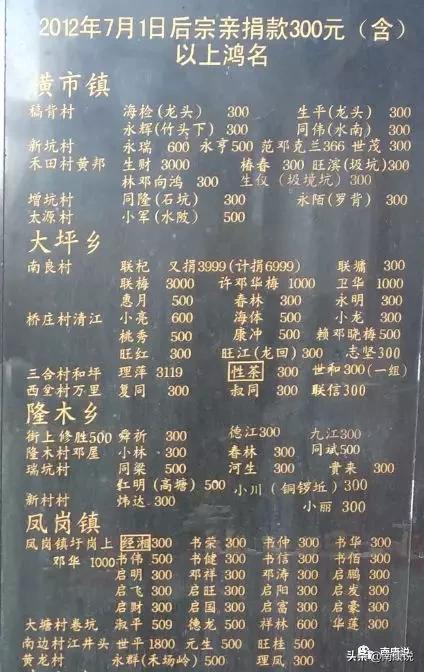 2012年7月1日后宗亲捐款300元（含）
以上鸿名
横市镇
稿背村 海检(龙头) 300 生平(龙头) 300
永辉(竹头下) 300 同伟(水南) 300
新坑村 永瑞 600 永亨500 范邓克兰366 世茂 300
禾田村黄邦 生财 3000 椿春 300 旺滨(圾坑)300
林邓向鸿 300 生仪(圾境坑) 300
增坑村 同隆(石坑) 300 永陌(罗背) 300
太源村 小军(水陂) 500
大坪乡
南良村 联杞 又捐3999(计捐6999) 联墉 300
联梅 3000 许邓华梅 1000 卫华 1000
惠月 500 春林 300 永明 300
桥庄村清江 小亮 600 海体 500 小龙 300
桃秀 500 康冲 500 赖邓晓梅 500
旺红 300 旺江(龙回) 300 志坚300
三合村和坪 理萍 3119 性茶 300 世和300(一组)
西坌村万里 复同 300 叔同 300 联信300
隆木乡
街上 修胜500 舜祈 300 德江300 九江300
隆木村邓屋 小林 300 春林 300 同斌500
瑞坑村 同梁 500 河生 300 贵来 300
红明(高塘) 500 小川(铜锣坵) 300
新村村 炜达 300 小丽 300
凤岗镇
凤岗镇圩岗上 经湘300 书荣 300 书仲 300 书华 300
邓华 1000 书伟 500 书健 300 书信 300 书佰 300
启明 300 邓祥 300 邓涛 300 启鹏 300
启飞 300 启旺 300 启阳 300 启发 300
启财 300 启国 300 启富 300 启豪 300
大塘村卷坑 淑平 509 德龙 500 祥林 600 华莲 300
南边村江井头 世平 1800 元生 500 旺桂 500
黄龙村 永群(禾场岭) 500 理凤 300
南康说
头条@南康说